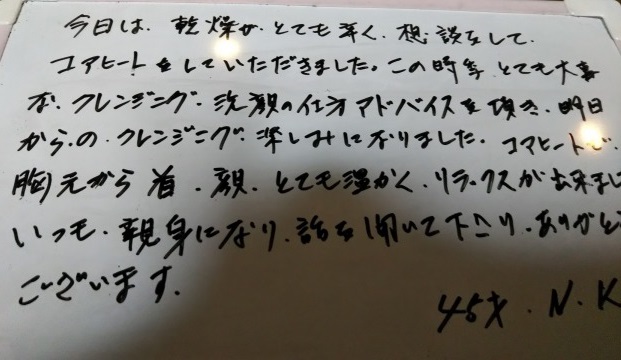 今日は、乾燥が、とても辛く、相談をして、
コアヒートをしていただきました。この時季、とても大事
な、クレンジング・洗顔の仕方アドバイスを頂き、明日
からの、クレンジング、楽しみになりました。コアヒートで、
胸元から首、顔、とても温かく、リラックスが出来まし
いつも、親身になり、話を聞いて下さり、ありがと
ございます。
45才、N.K